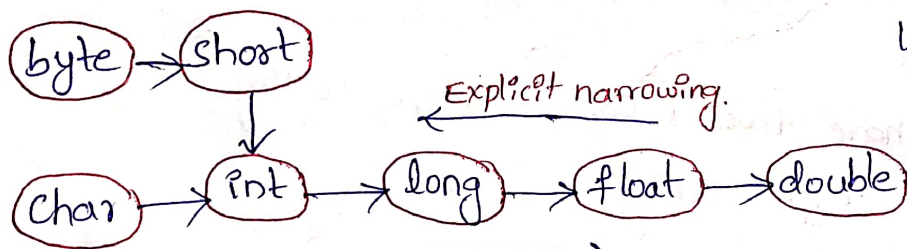 byte short
Explicit narrowing.
Char int long float double